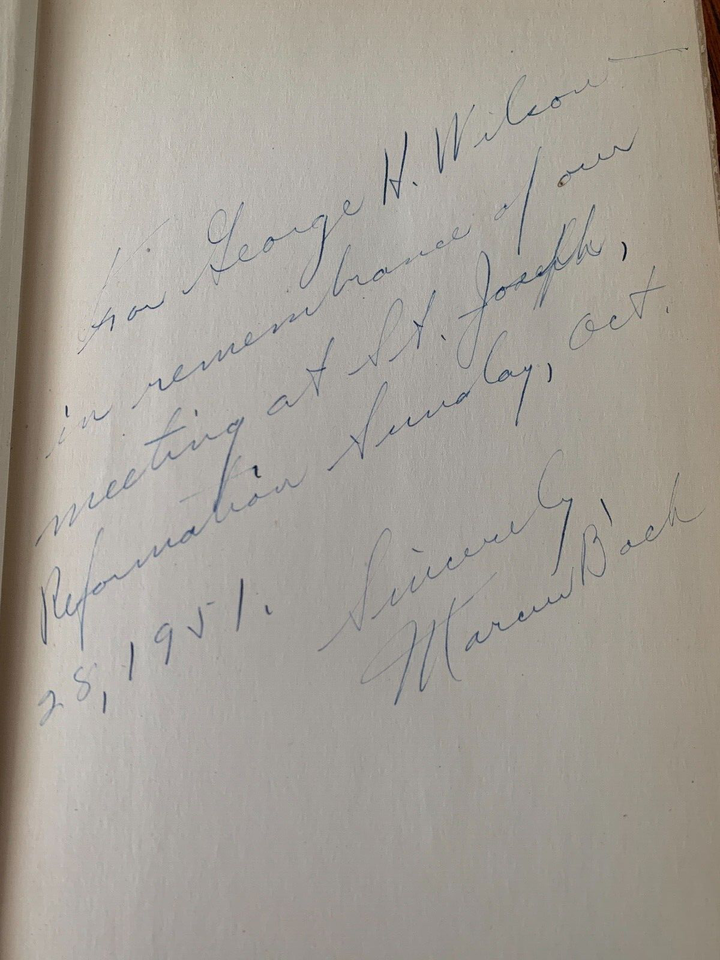 For George H. Wilson
in remembrance of our
meeting at St. Joseph,
Reformation Sunday, Oct.
28, 1951.
Sincerely,
Marcus Bach